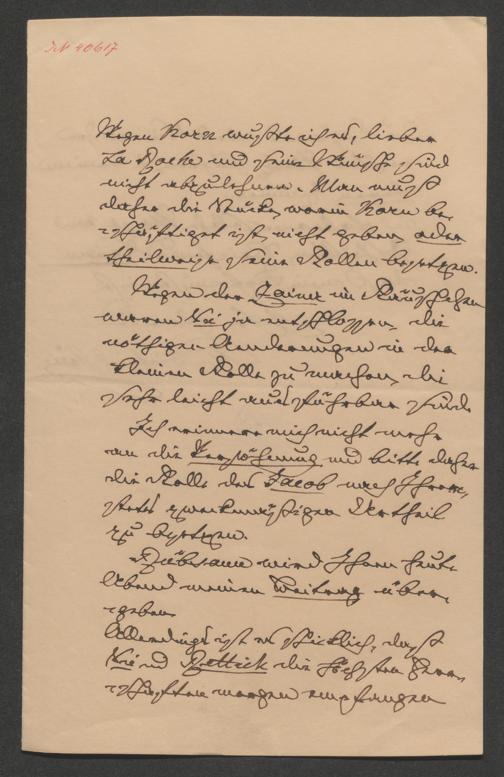 IN 40617
Wegen Korn wußte ich es, lieber
La Roche und seine Wünsche sind
nicht abzulehnen. Man muß
daher die Stücke, worin Korn be-
schäftiget ist, nicht geben, oder
theilweise seine Rollen besetzen.
Wegen der im
waren Sie ja entschlossen, die
nöthigen Aenderungen in der
kleinen Rolle zu machen, die
sehr leicht ausführbar sind.
Ich erinnere mich nicht mehr
an die Versöhnung und bitte daher
die Rolle des Jacob nach Ihrem,
stets zweckmäßigen Urtheil
zu besetzen.
wird Ihnen heute
Abend meinen Beitrag über-
geben.
Allerdings ist es schicklich, daß
Sie und Rettich die höchsten Herr-
schaften morgen empfangen